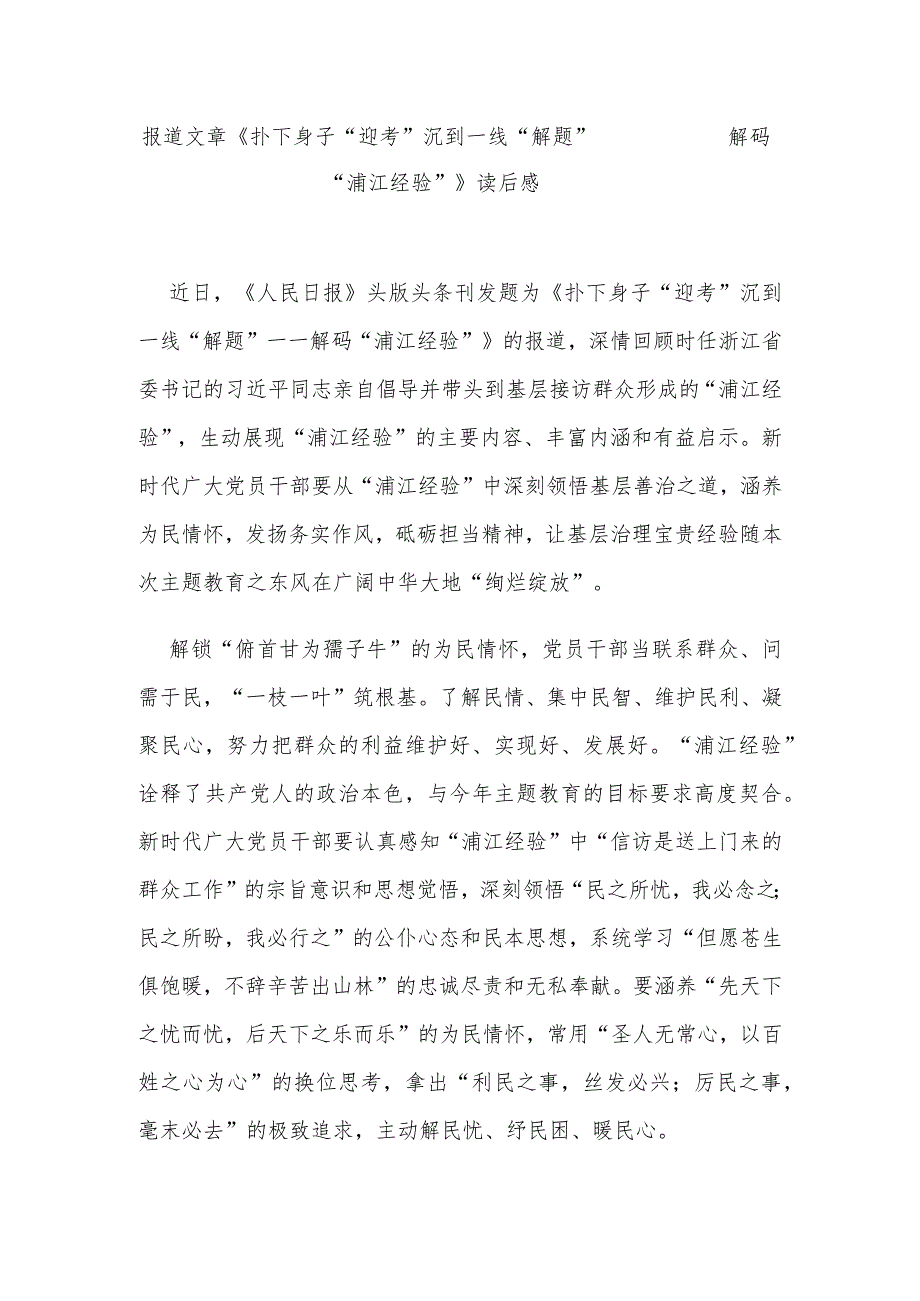 报道文章《扑下身子“迎考”沉到一线“解题” 解码
“浦江经验”》读后感
近日，《人民日报》头版头条刊发题为《扑下身子“迎考”沉到
一线“解题”一一解码“浦江经验”》的报道，深情回顾时任浙江省
委书记的习近平同志亲自倡导并带头到基层接访群众形成的“浦江经
验”，生动展现“浦江经验”的主要内容、丰富内涵和有益启示。新
时代广大党员干部要从“浦江经验”中深刻领悟基层善治之道，涵养
为民情怀，发扬务实作风，砥砺担当精神，让基层治理宝贵经验随本
次主题教育之东风在广阔中华大地“绚烂绽放”。
解锁“俯首甘为孺子牛”的为民情怀，党员干部当联系群众、问
需于民，“一枝一叶”筑根基。了解民情、集中民智、维护民利、凝
聚民心，努力把群众的利益维护好、实现好、发展好。“浦江经验”
诠释了共产党人的政治本色，与今年主题教育的目标要求高度契合。
新时代广大党员干部要认真感知“浦江经验”中“信访是送上门来的
群众工作”的宗旨意识和思想觉悟，深刻领悟“民之所忧，我必念之；
民之所盼，我必行之”的公仆心态和民本思想，系统学习“但愿苍生
俱饱暖，不辞辛苦出山林”的忠诚尽责和无私奉献。要涵养“先天下
之忧而忧，后天下之乐而乐”的为民情怀，常用“圣人无常心，以百
姓之心为心”的换位思考，拿出“利民之事，丝发必兴；厉民之事，
毫末必去”的极致追求，主动解民忧、纾民困、暖民心。